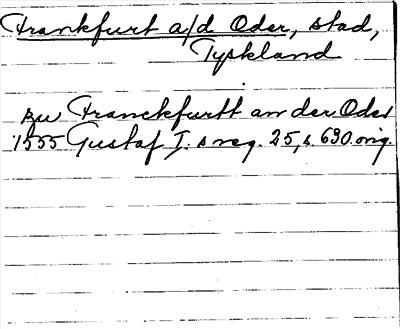 Frankfurt a/d Oder, stad,
Tyskland
zu Franckfurtt an der Oder
1555 Gustaf I:s reg. 25, s. 690. orig.